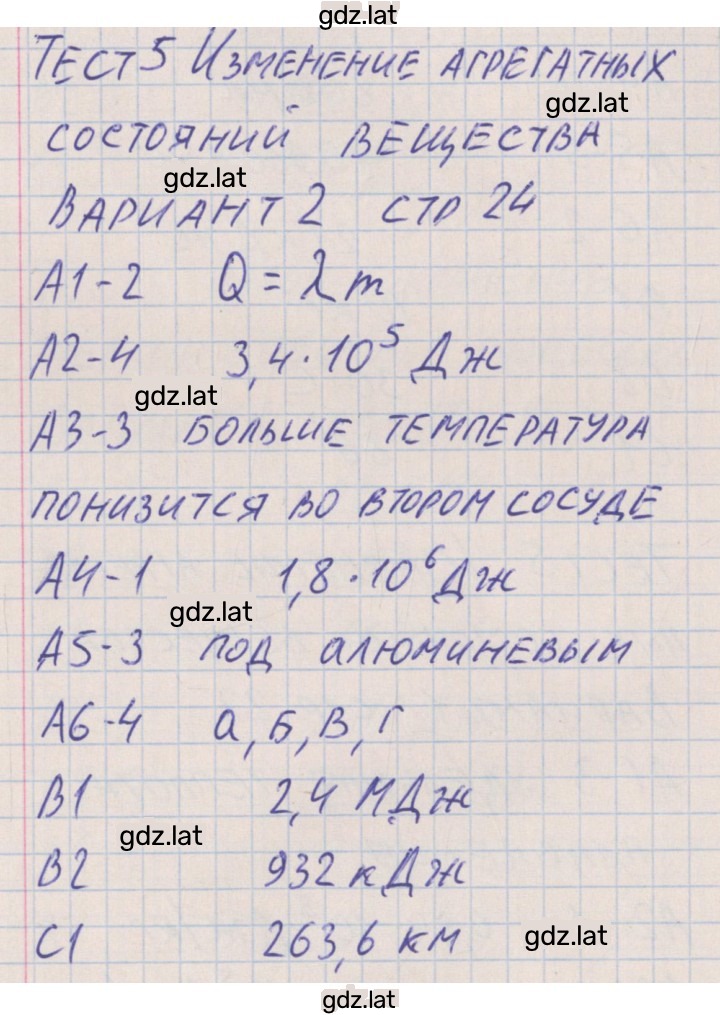 gdz.lat
Тест 5 Изменение агрегатных
gdz.lat
состояний вещества
gdz.lat
Вариант 2 стр 24
А1-2 Q = λm
А2-4 3,4·10⁵ Дж
gdz.lat
А3-3 больше температура
понизится во втором сосуде
А4-1 1,8·10⁶ Дж
gdz.lat
А5-3 под алюминевым
А6-4 а, б, в, г
В1 2,4 МДж
gdz.lat
В2 932 кДж
С1 263,6 км
gdz.lat
gdz.lat